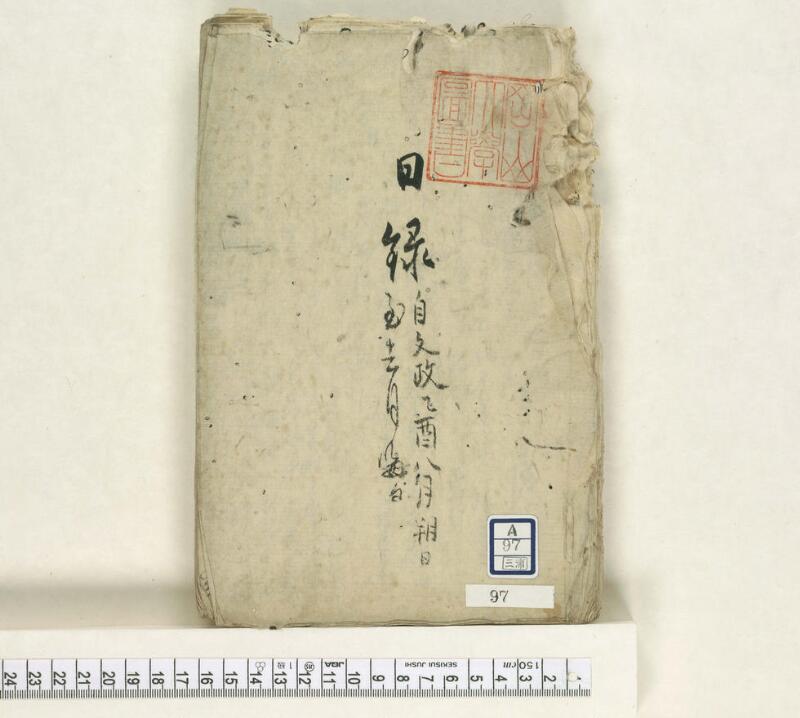 日録
自文政乙酉八月朔日
至十二月晦日
岡山
大学
図書
A
97
三浦
97
24 23 22 21 20 19 18 17 16 15 14 13 12 11 10 9 8 7 6 5 4 3 2 1
1級 JBA SEKISUI JUSHI cm 150